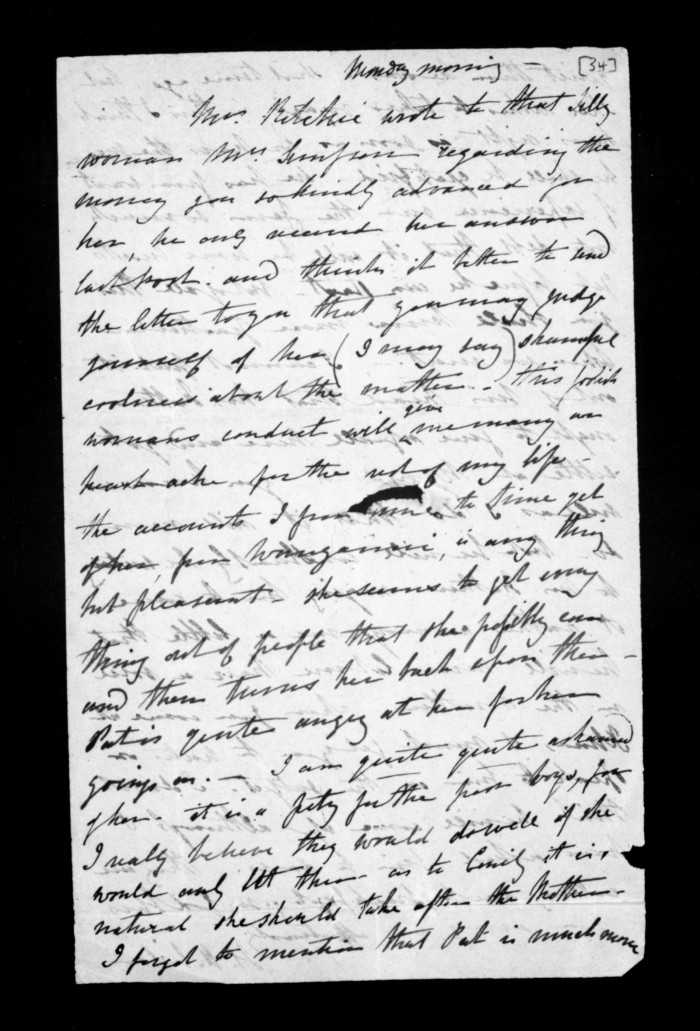 Monday morning — [34]
Mr Ritchie wrote to that silly
woman Mrs Simpson regarding the
money you so kindly advanced for
her, he only received her answer
last post. and thinks it better to send
the letter to you that you may judge
yourself of her (I may say) shameful
coolness about the matter. This foolish
womans conduct will give me many an
heart ache for the rest of my life —
the accounts I from time to time get
of her, from Wanganui, is any thing
but pleasant — she seems to get every
thing out of people that she possibly can
and then turns her back upon them —
Pat is quite angry at her for her
goings on. — I am quite quite ashamed
of her. it is a pity for the poor boys, for
I really believe they would do well if she
would only let them as to Emily it is
natural she should take after the Mother.
I forgot to mention that Pat is much more